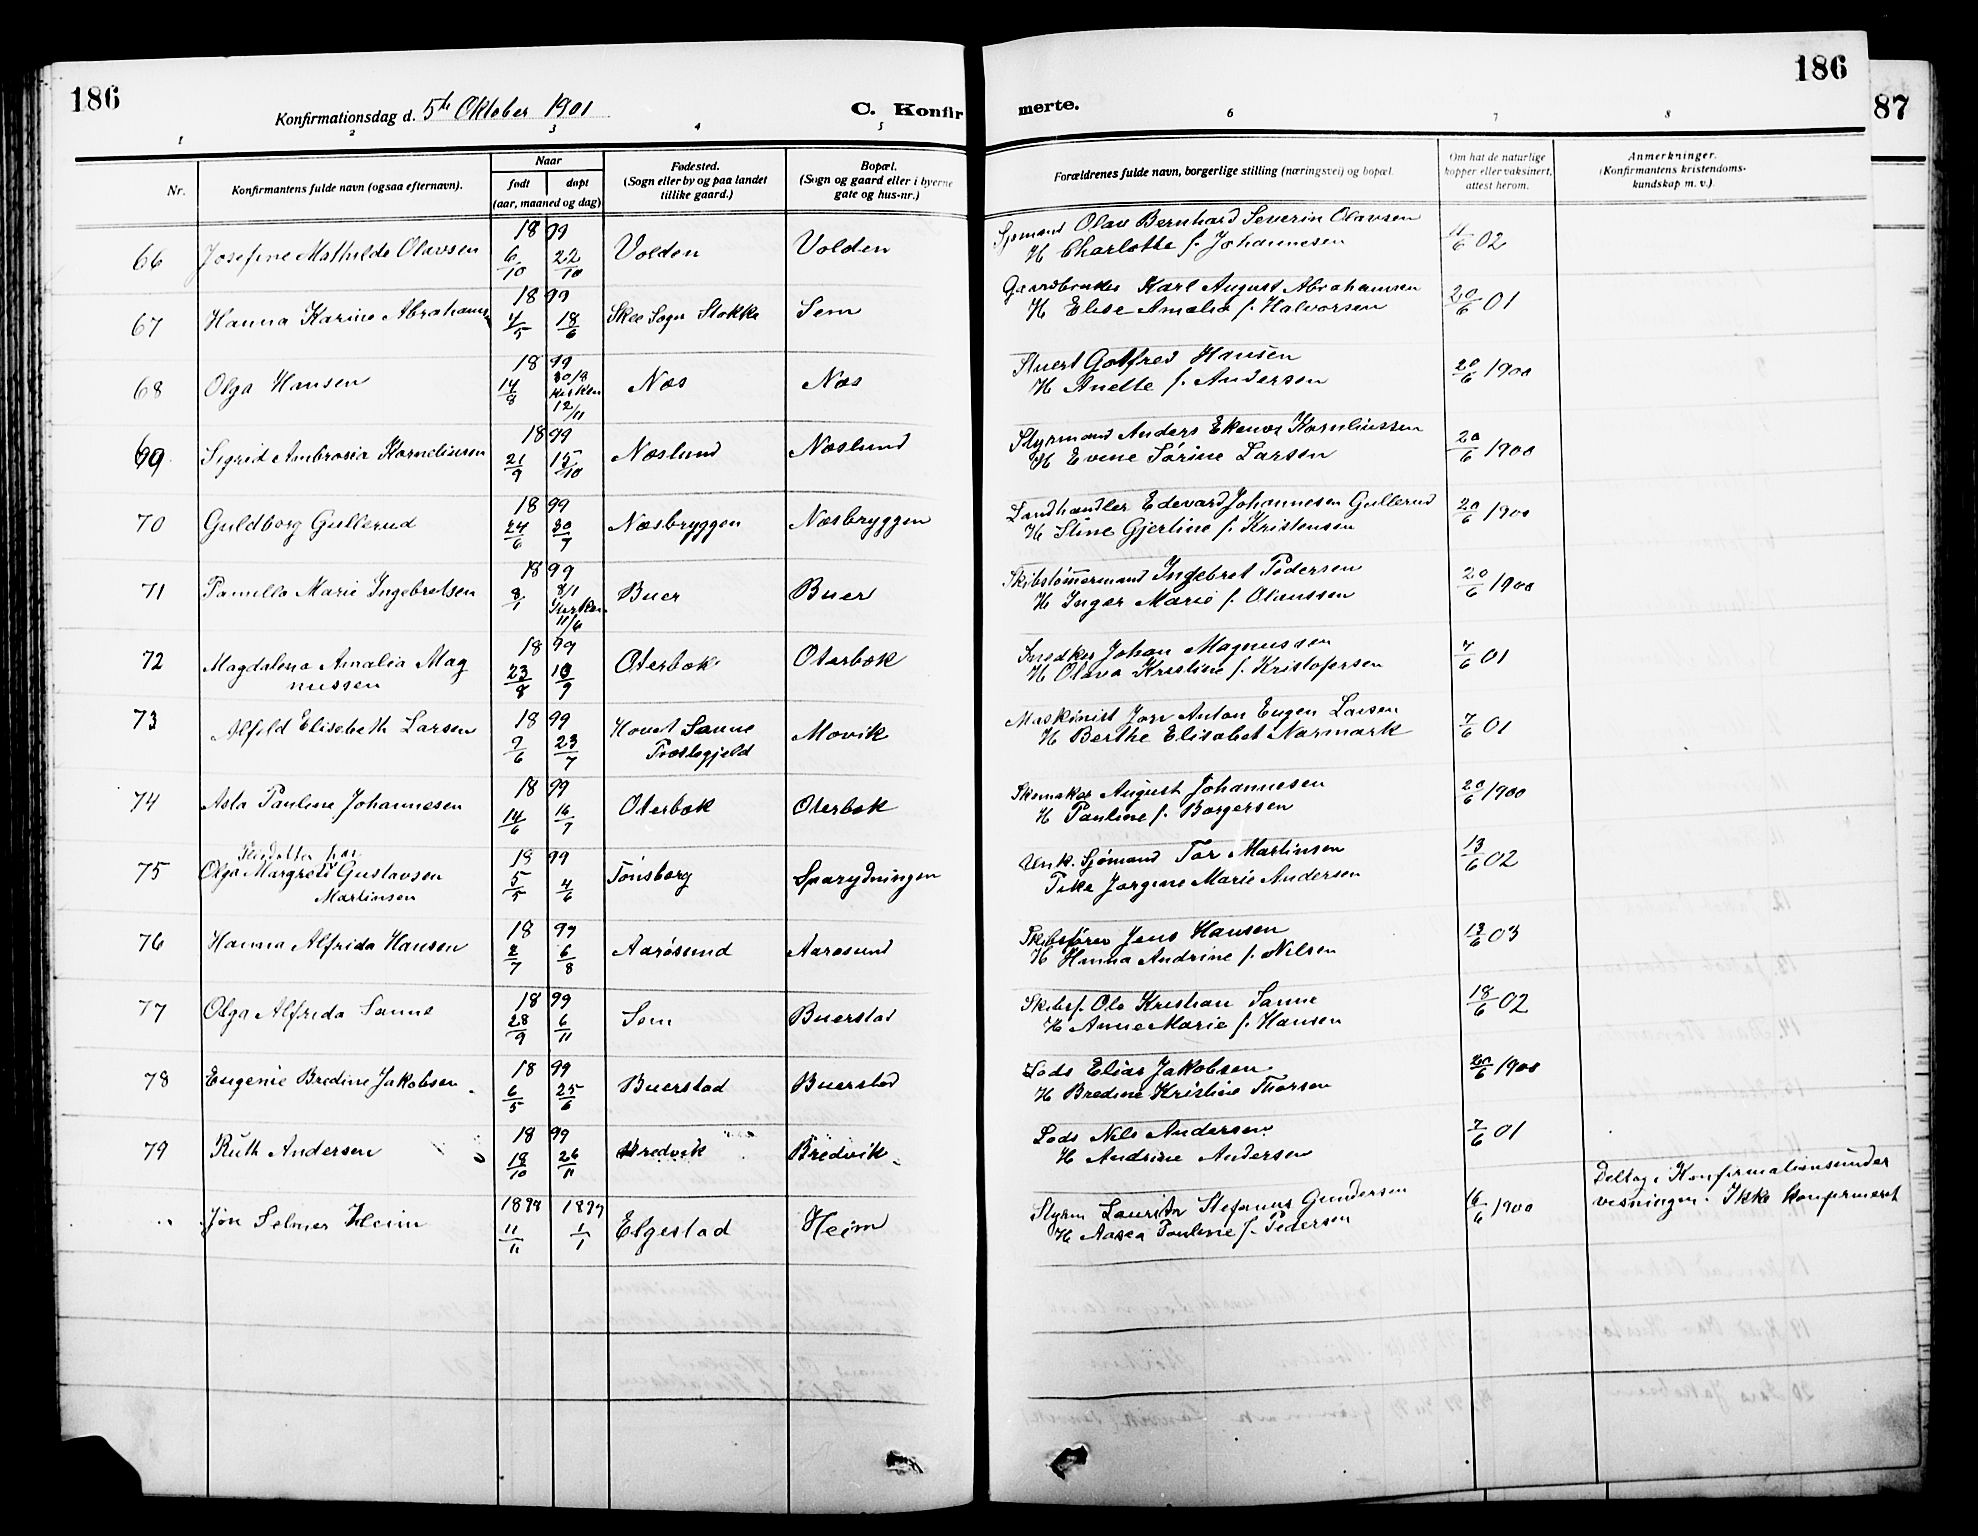 186
Konfirmationsdag d. 5te Oktober 1901
C. Konfir
merte.
186
87
1 2 3 4 5 6 7 8
Nr.
Konfirmantens fulde navn (ogsaa efternavn).
Naar
født døpt
(aar, maaned og dag)
Fødested.
(Sogn eller by og paa landet
tillike gaard.)
Bopæl.
(Sogn og gaard eller i byerne
gate og hus-nr.)
Forældrenes fulde navn, borgerlige stilling (næringsvei) og bopæl.
Om hat de naturlige
kopper eller vaksinert,
attest herom.
Anmerkninger.
(Konfirmantens kristendoms-
kundskap m. v.).
66 Josefine Mathilde Olavsen 18 99 6/10 22/10 Volden Volden
Sjømand Olav Bernhard Severin Olavsen
H Charlotte f. Johannesen 11/6 02
67 Hanna Karine Abrahams 18 99 4/5 18/6 Skee Sogn Stokke Sem
Gaardbruker Karl August Abrahamsen
H Elise Amalia f. Halvorsen 20/6 01
68 Olga Hansen 18 99 14/8 30/8 Kirken 12/11 Næs Næs
Stuert Gotfred Hansen
H Anette f. Andersen 20/6 1900
69 Sigrid Ambrosia Korneliusen 18 99 21/9 15/10 Næslund Næslund
Styrmand Anders Kornliussen
H Evine Sørine Larsen 20/6 1900
70 Guldborg Gullerud 18 99 24/6 30/7 Næsbryggen Næsbryggen
Landhandler Edevard Johannesen Gullerud
H Stine Gjerline f. Kristensen 20/6 1900
71 Pamilla Marie Ingebretsen 18 99 8/1 8/1 Kirken 11/6 Buer Buer
Skibstømmermand Ingebret Pedersen
H Inger Marie f. Olaussen 20/6 1900
72 Magdalena Amalia Mag
nussen 18 99 23/8 10/9 Oterbæk Oterbæk
Snedker Johan Magnussen
H Olava Kristine f. Kristofersen 7/6 01
73 Alfeld Elisebeth Larsen 18 99 9/6 23/7 Hovet Sanne
Trostegjeld Movik
Maskinist Jørn Anton Eugen Larsen
H Berthe Elisabet Narmark 7/6 01
74 Asta Pauline Johannesen 18 99 14/6 16/7 Oterbæk Oterbæk
Skomaker August Johannesen
H Pauline f. Borgersen 20/6 1900
75 Pleiedatter for
Olga Margrete Gustavsen
Martinsen 18 99 5/5 4/6 Tønsberg
Unk. Sjømand Tor Martinsen
Pike Jørgine Marie Andersen 13/6 02
76 Hanna Alfrida Hansen 18 99 2/7 6/8 Aarøsund Aarøsund
Skibsfører Jens Hansen
H Hanna Andrine f. Nilsen 13/6 03
77 Olga Alfrida Sanne 18 99 28/9 6/11 Sem Buerstad
Skibsf. Ole Kristian Sanne
H Anne Marie f. Hansen 18/6 02
78 Eugenie Bredine Jakobsen 18 99 6/5 25/6 Buerstad Buerstad
Lods Elias Jakobsen
H Bredine Kristine Thorsen 20/6 1900
79 Ruth Andersen 18 99 18/10 26/11 Bredvik Bredvik
Lods Nils Andersen
H Andrine Andersen 7/6 01
Jon Selmer Heim 1898 1899 11/11 1/1 Elgestad Heim
Styrm Lauritz Stefanus Gundersen
H Aasea Pauline f. Pedersen 16/6 1900
Deltog i Konfirmationsunder
visningen. Ikke konfirmeret